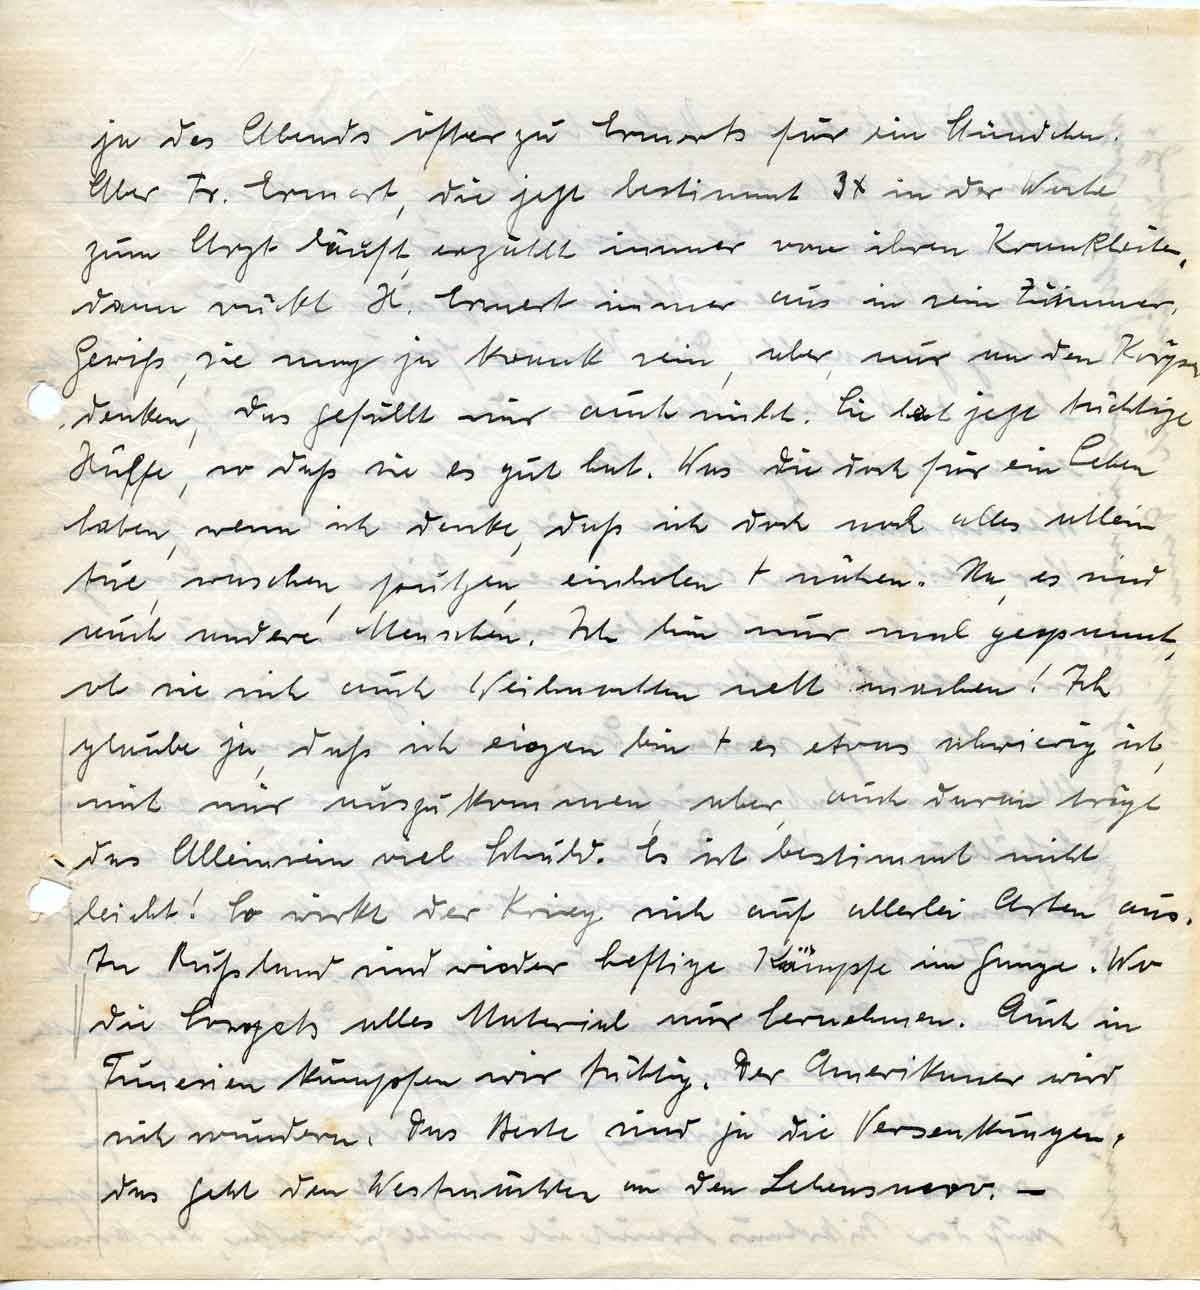 ja des Abends öfter zu Ermerts für ein Stündchen.
Aber Fr. Ermert, die jetzt bestimmt 3x in der Woche
zum Arzt läuft, erzählt immer von ihren Krankheiten,
dann rückt H. Ermert immer aus in sein Zimmer.
Gewiß, sie mag ja krank sein, aber, nur an den Körper
denken, das gefällt mir auch nicht. Sie hat jetzt tüchtige
Hülfe, so daß sie es gut hat. Was die doch für ein Leben
haben, wenn ich denke, daß ich doch noch alles allein
tue, waschen, putzen, einholen + nähen. Na, es sind
auch andere Menschen. Ich bin nur mal gespannt,
ob sie sich auch Weihnachten nett machen! Ich
glaube ja, daß ich eigen bin + es etwas schwierig ist,
mit mir auszukommen, aber, auch daran trägt
das Alleinsein viel Schuld. Es ist bestimmt nicht
leicht! So wirkt der Krieg sich auf allerlei Arten aus.
In Rußland sind wieder heftige Kämpfe im Gange. Wo
die Sowjets alles Material nur hernehmen. Auch in
Tunesien kämpfen wir tüchtig. Der Amerikaner wird
sich wundern. Das Beste sind ja die Versenkungen,
das geht den Westmächten an den Lebensnerv. —